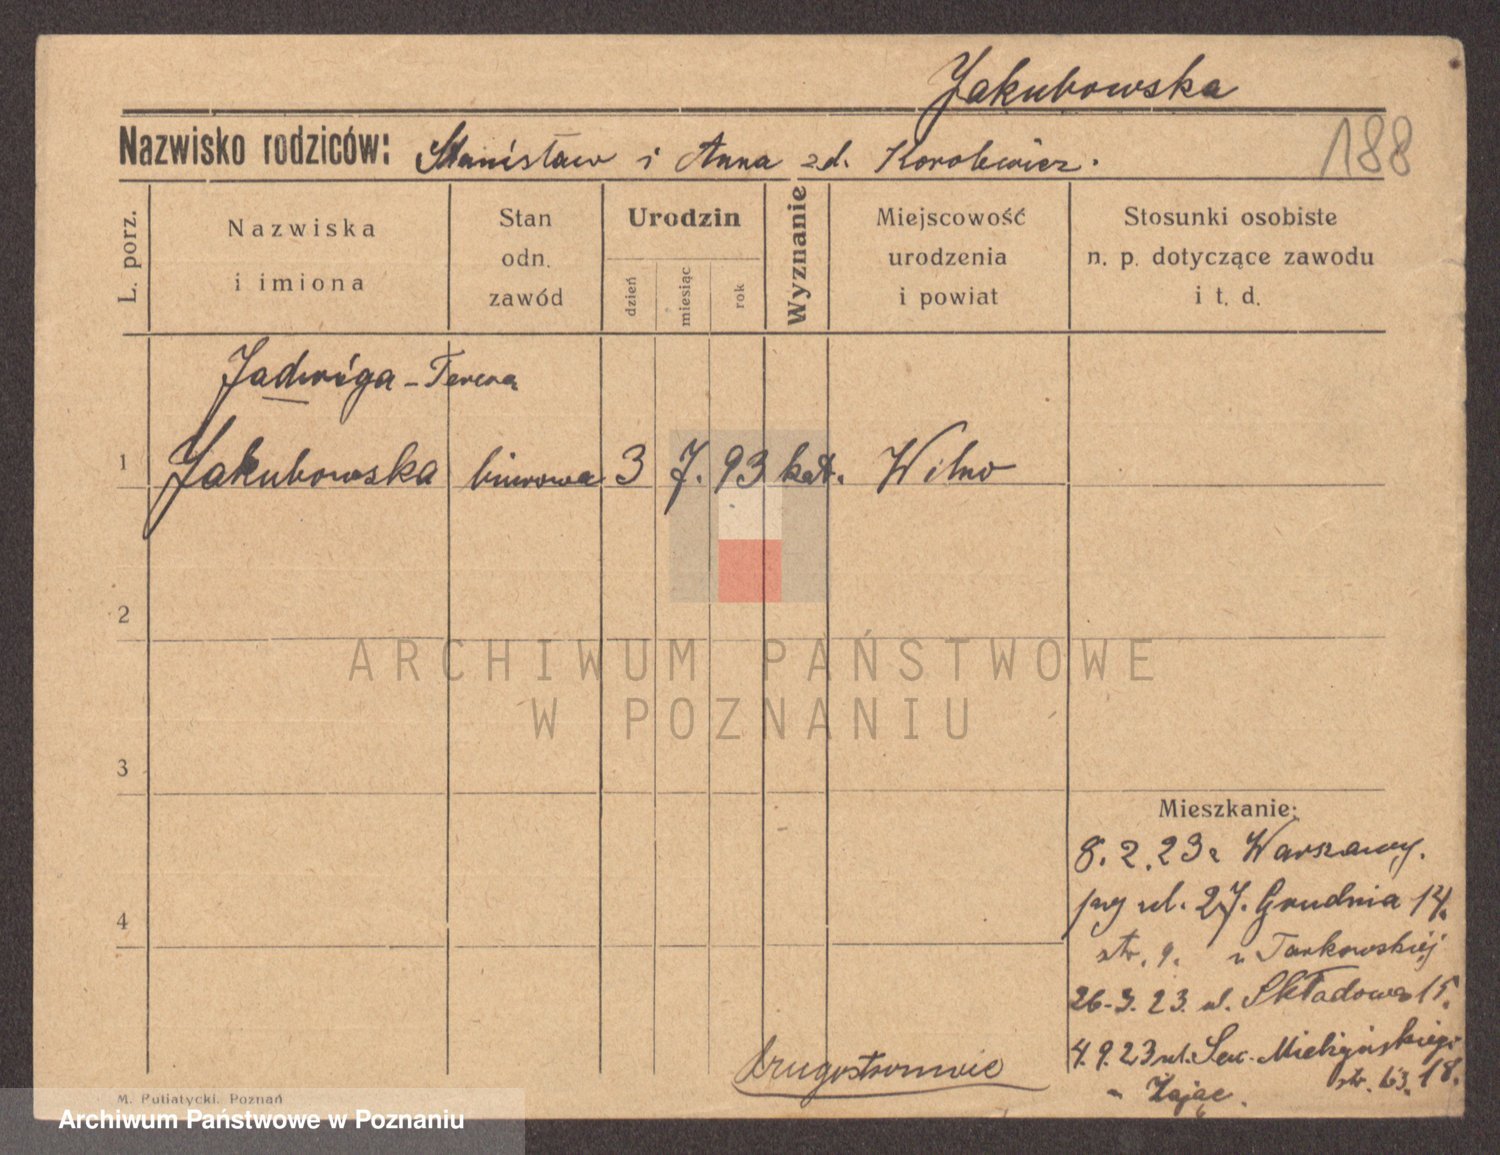 Jakubowska
188
Nazwisko rodziców: Stanisław i Anna zd. Korolewicz.
L. porz.
Nazwiska
i imiona
Stan
odn.
zawód
Urodzin
dzień
miesiąc
rok
Wyznanie
Miejscowość
urodzenia
i powiat
Stosunki osobiste
n. p. dotyczące zawodu
i t. d.
Jadwiga - Teresa
1 Jakubowska biurowa 3 7. 93 kat. Wilno
2
ARCHIWUM PAŃSTWOWE
W POZNANIU
3
4
Mieszkanie:
8. 2. 23 z Warszawy.
przy ul. 27. Grudnia 14.
str. 9. u Tarkowskiej
26-3. 23. ul. Składowa 15.
4. 9. 23 ul. Sew. Mielżyńskiego
str. 63. 18.
- Zając.
drugostronnie
M. Putiatycki. Poznań
Archiwum Państwowe w Poznaniu